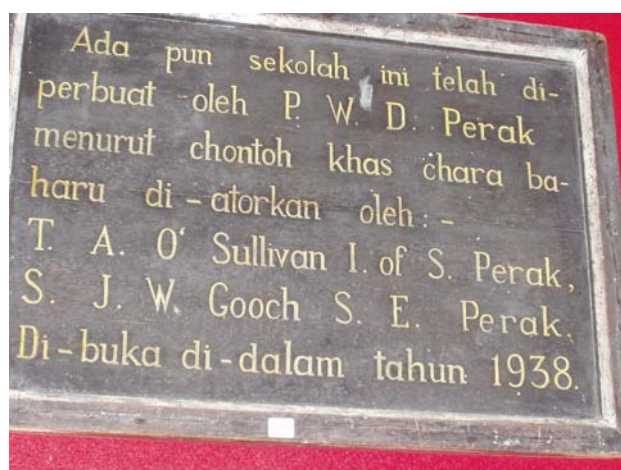 Ada pun sekolah ini telah di-
perbuat oleh P. W. D. Perak
menurut chontoh khas chara ba-
haru di-atorkan oleh:-
T. A. O' Sullivan I. of S. Perak,
S. J. W. Gooch S. E. Perak.
Di-buka di-dalam tahun 1938.